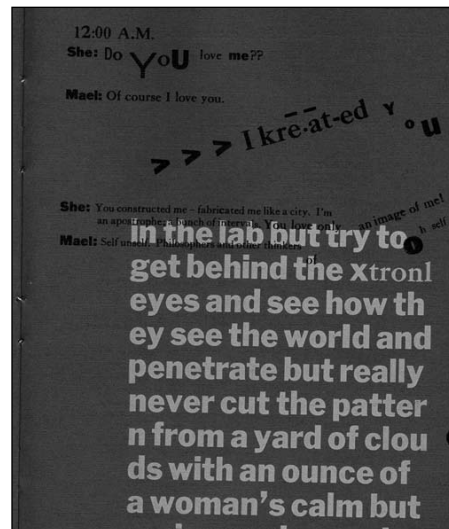 12:00 A.M.
She: Do YoU love me??
Mael: Of course I love you.
> > > I krē·āt-ed You
She: You constructed me – fabricated me like a city. I'm
an apostrophe, a bunch of intervals. You love only an image of me!
Mael: Self unself. Philosophers and other thinkers
of
h self
in the lab but try to
get behind the xtronl
eyes and see how th
ey see the world and
penetrate but really
never cut the patter
n from a yard of clou
ds with an ounce of
a woman's calm but